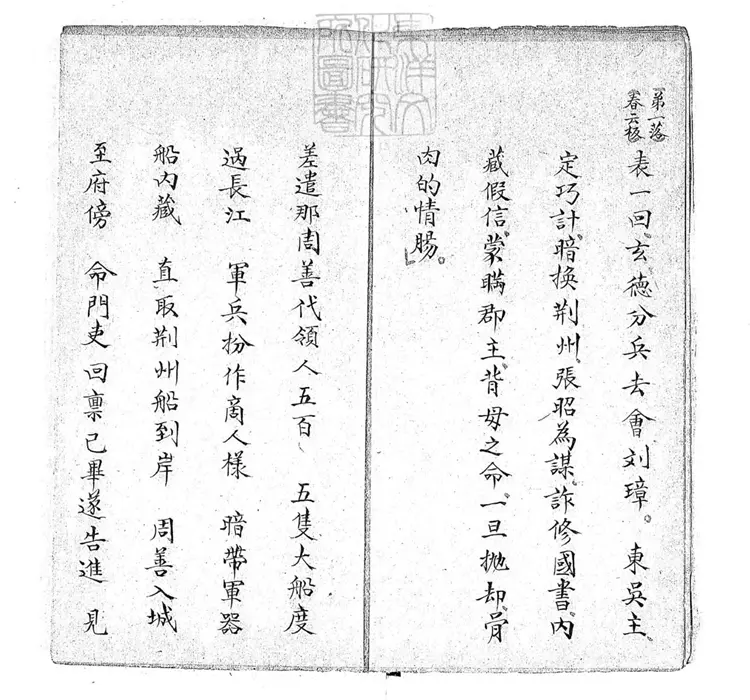 第一落
春云板
表一回。玄德分兵去會刘璋。東吳主、
定巧計、暗換荆州、張昭為謀、詐修國書、內
藏假信、蒙瞞郡主、背母之命、一旦拋却、骨
肉的情腸。
差遣那周善代領人五百、五隻大船度
過長江 軍兵扮作商人樣 暗帶軍器
船內藏 直取荆州船到岸 周善入城
至府傍 命門吏回稟已畢遂告進 見